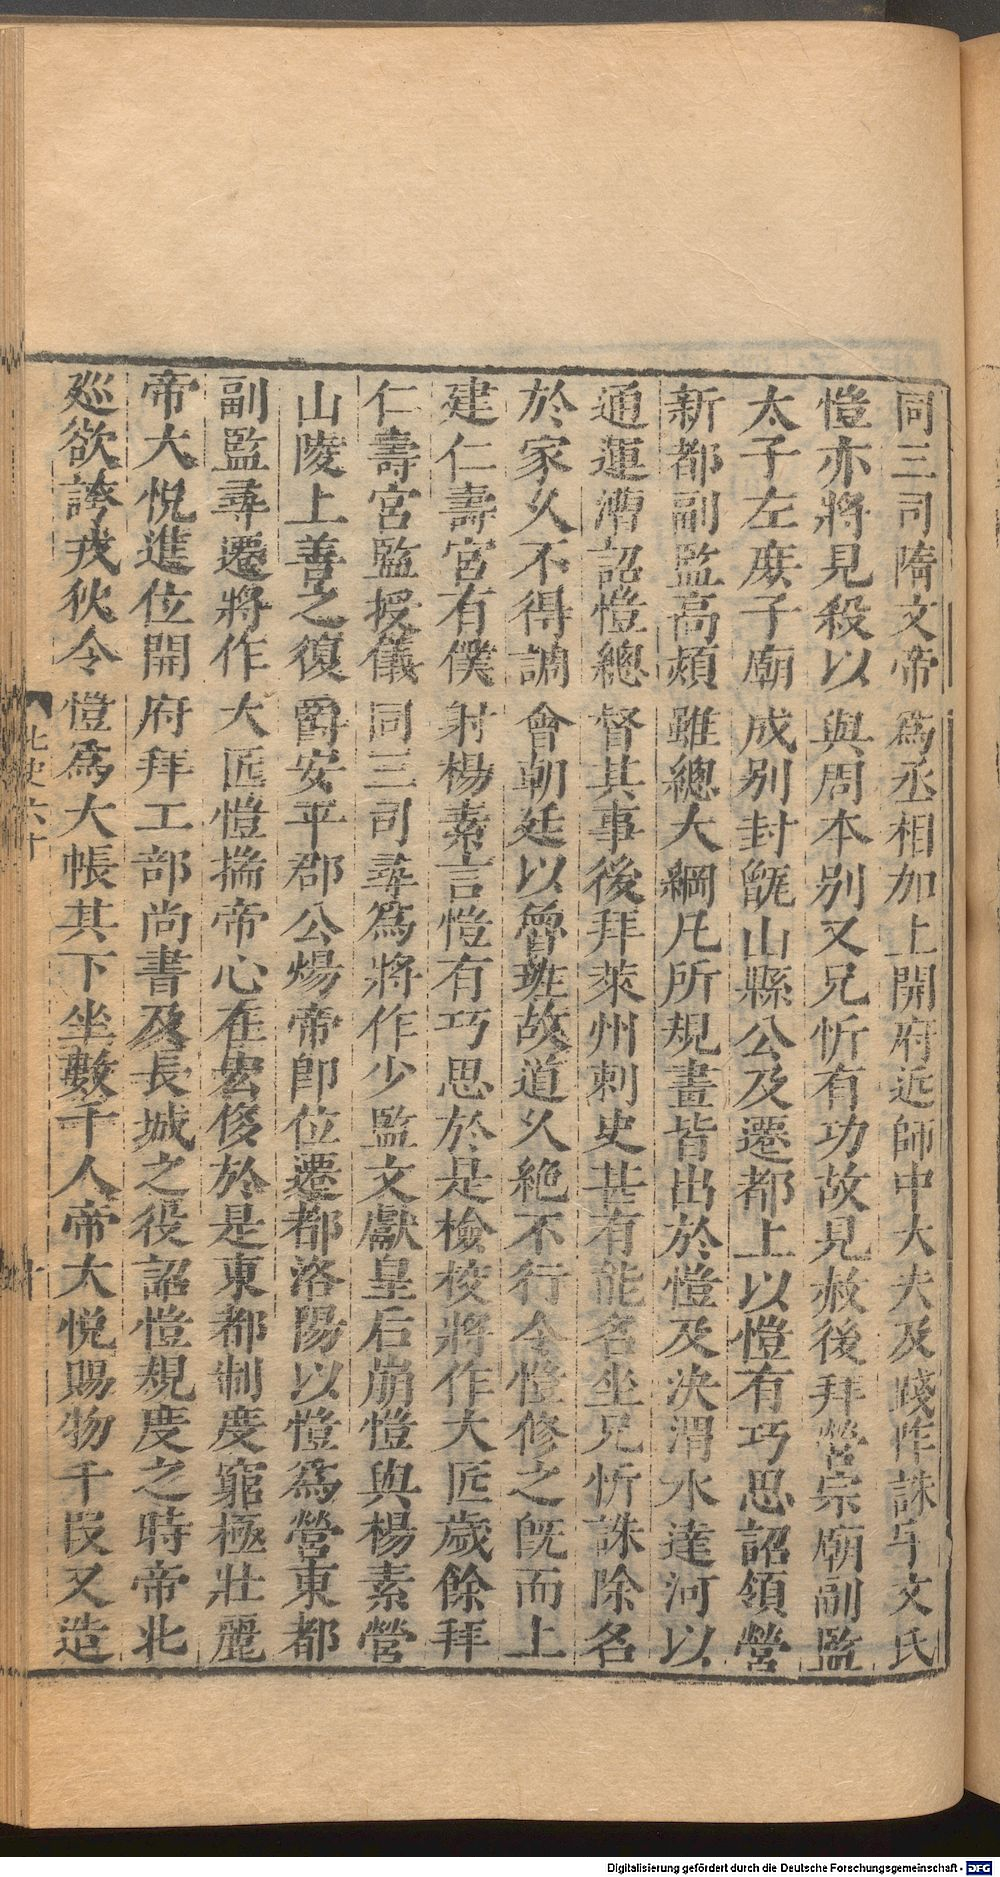 同三司隋文帝爲丞相加上開府近師中大夫及踐阼誅宇文氏
愷亦將見殺以與周本别又兄忻有功故見赦後拜營宗廟副監
太子左庶子廟成别封甑山縣公及遷都上以愷有巧思詔領營
新都副監高熲雖總大綱凡所規畫皆出於愷及決渭水達河以
通運漕詔愷總督其事後拜萊州刺史甚有能名坐兄忻誅除名
於家久不得調會朝廷以魯班故道久絶不行令愷修之旣而上
建仁壽宮有僕射楊素言愷有巧思於是檢校將作大匠歲餘拜
仁壽宮監授儀同三司尋爲將作少監文獻皇后崩愷與楊素營
山陵上善之復爵安平郡公煬帝卽位遷都洛陽以愷爲營東都
副監尋遷將作大匠愷揣帝心在宏侈於是東都制度窮極壯麗
帝大悅進位開府拜工部尚書及長城之役詔愷規度之時帝北
廵欲誇戎狄令愷爲大帳其下坐數千人帝大悅賜物千段又造
北史六十
Digitalisierung gefördert durch die Deutsche Forschungsgemeinschaft - DFG